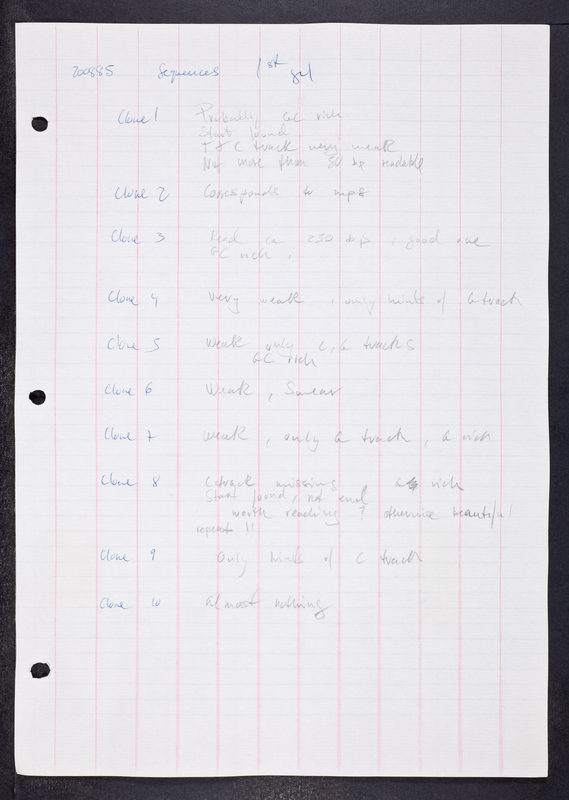 200885 Sequences 1st gel
Clone 1 Probably GC rich
Start found
T & C track very weak
Not more than 50 bp readable
Clone 2 Corresponds to mp8
Clone 3 Read ca 250 bp, good one
GC rich,
Clone 4 Very weak, only hints of G track
Clone 5 Weak only C, G tracks
GC rich
Clone 6 Weak, Smear
Clone 7 Weak, only G track, G rich
Clone 8 C track missing rich
Start found, not end
worth reading? otherwise beautiful
repeat !!
Clone 9 Only hints of C track
Clone 10 almost nothing